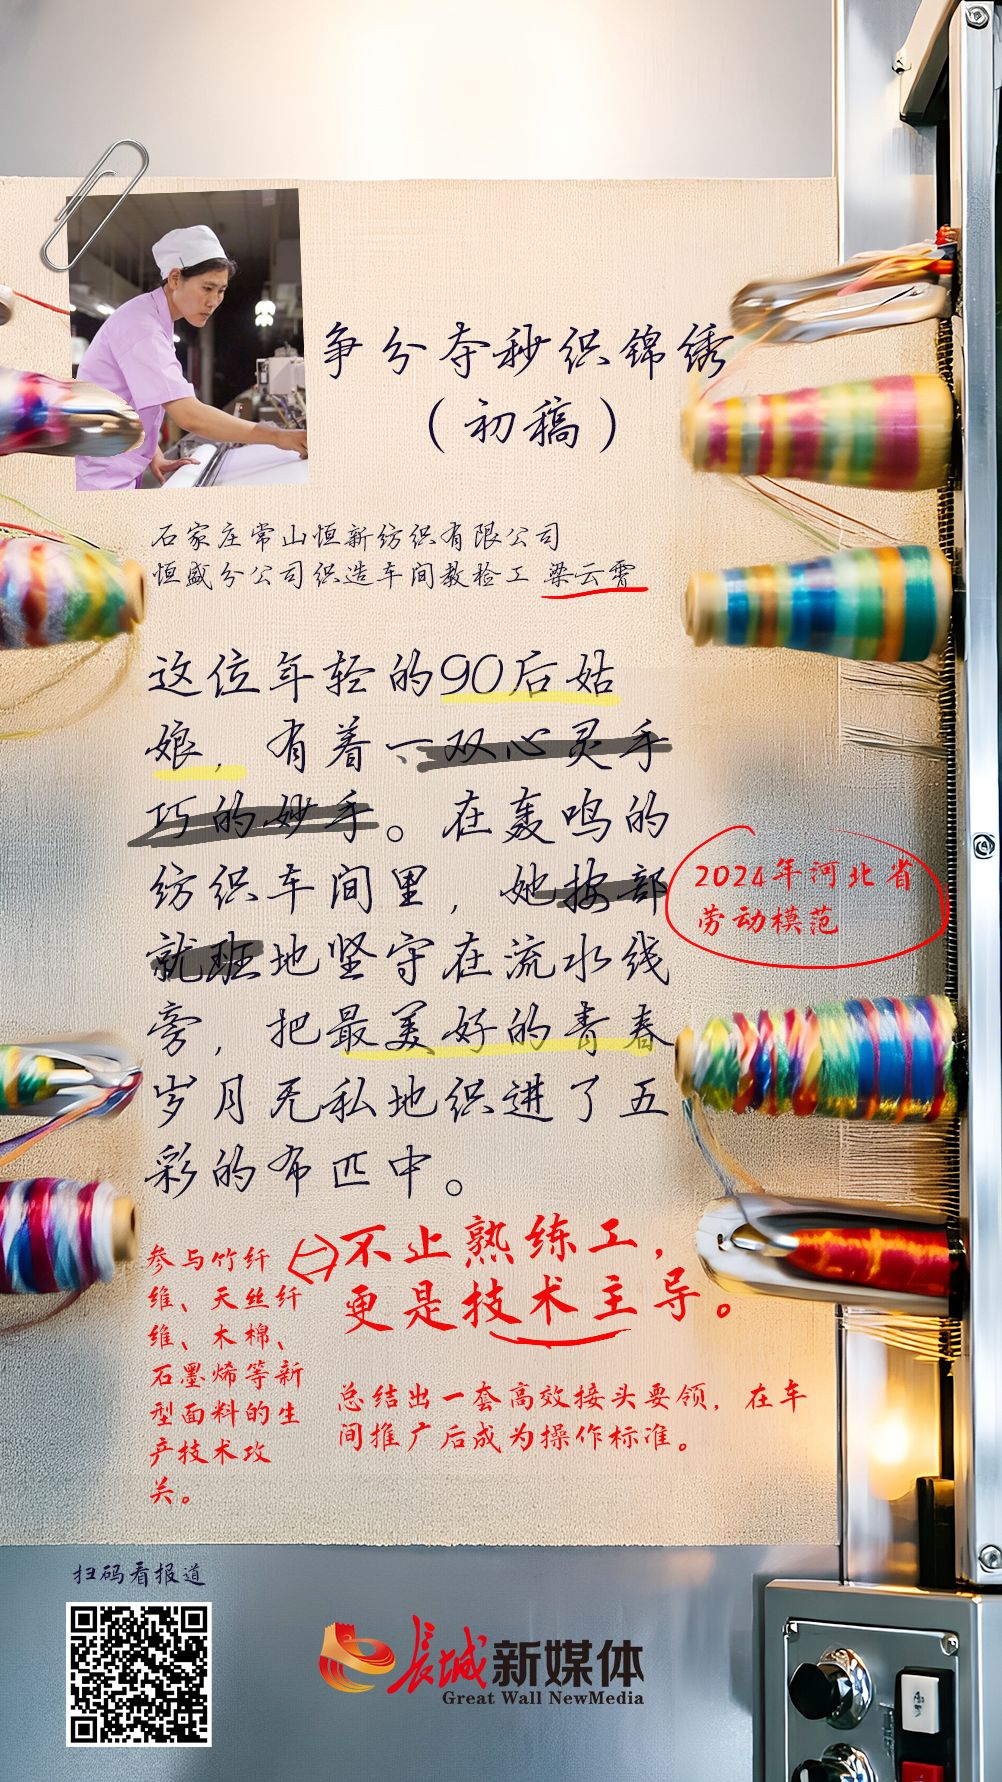 争分夺秒织锦绣
（初稿）
石家庄常山恒新纺织有限公司
恒盛分公司织造车间教检工 梁云霄
这位年轻的90后姑
娘，有着一双心灵手
巧的妙手。在轰鸣的
纺织车间里，她按部
就班地坚守在流水线
旁，把最美好的青春
岁月无私地织进了五
彩的布匹中。
2024年河北省
劳动模范
不止熟练工，
更是技术主导。
参与竹纤
维、天丝纤
维、木棉、
石墨烯等新
型面料的生
产技术攻
关。
总结出一套高效接头要领，在车
间推广后成为操作标准。
扫码看报道
长城新媒体
Great Wall NewMedia